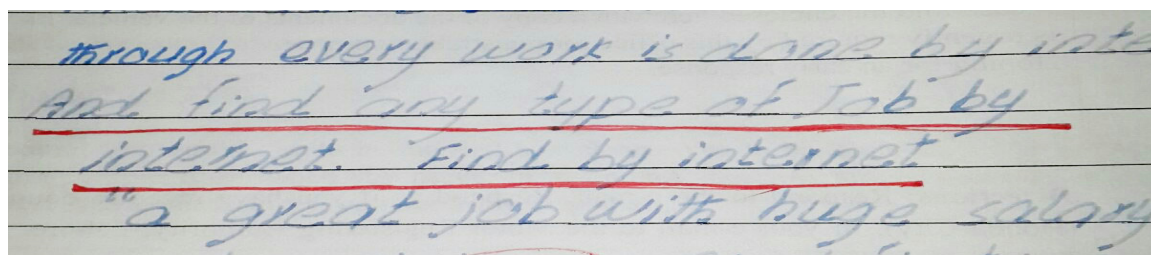 through every work is done by inte
And find any type of Job by
internet. Find by internet
"a great job with huge salary